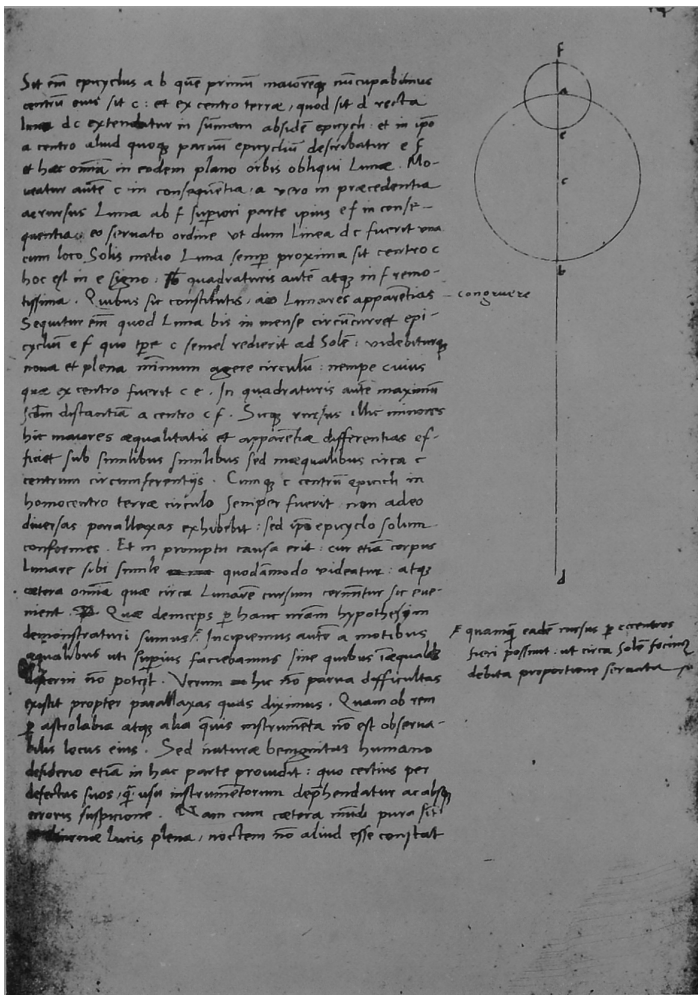 f
a
e
c
b
d
Sit em̄ epicyclus a b quē primū maioremqꝫ nūcupabimus
centrū eius sit c : et ex centro terræ, quod sit d recta
linea d c extendatur in sūmam absidē epicycli : et in ip̄o
a centro aliud quoqꝫ parvum epicycliū describatur e f
et hæc omnia in eodem plano orbis obliqui Lunæ. Mo-
veatur autē c in consequentia, a vero in præcedentia
ac rursus Luna ab f superiori parte ipsius e f in conse-
quentia, eo servato ordine ut dum linea d c fuerit una
cum loco Solis medio Luna semp̱ proxima sit centro c
hoc est in e signo : quadraturis autē atqꝫ in f remo-
tissima. Quibus sic constitutis, aio Lunares apparentias
congruere
Sequitur em̄ quod Luna bis in mense circūcurret epi-
cyclium e f quo tp̄e c semel redierit ad Solē : videbiturqꝫ
nova et plena minimum agere circulū : nempe cuius
quæ ex centro fuerit c e. In quadraturis autē maximū
scd̄m distantiā a centro c f. Sicqꝫ rursus illic minores
hic maiores æqualitatis et apparentiæ differentias ef-
ficiet sub similibus similibus sed inæqualibus circa c
centrum circumferentijs. Cumqꝫ c centrū epicycli in
homocentro terræ circulo semper fuerit non adeo
diversas parallaxas exhibebit : sed ip̄o epicyclo solum
conformes. Et in promptu causa erit : cur etiā corpus
Lunare sibi simile quodāmodo videatur : atqꝫ
cætera omnia quæ circa Lunarē cursum cernūtur sic eve-
nient. Quæ deinceps ꝑ hanc nr̄am hypothesim
demonstraturi sumus. Incipiemus autē a motibus
quamqꝫ eadē rursus ꝑ eccentros
fieri possint : ut circa Solē fecimus
debita proportione servata
æqualibus uti superius faciebamus sine quibus inæqualis
discerni nō potest. Verum hic nō parva difficultas
existit propter parallaxas quas diximus. Quam ob rem
ꝑ astrolabia atqꝫ alia quævis instrumēta nō est observa-
bilis locus eius. Sed naturæ benignitas humano
desiderio etiā in hac parte providit : quo certius per
defectus suos, q̄ꝫ usu instrumentorum dep̱hendatur ac absqꝫ
erroris suspicione. Nam cum cætera mūdi pura sint
lucis plena, noctem nō aliud esse constat